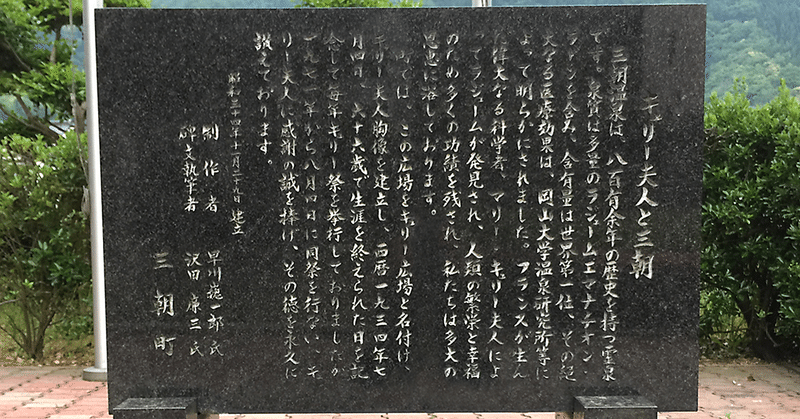 キュリー夫人と三朝
三朝温泉は、八百有余年の歴史を持つ霊泉
です。泉質は多量のラジューム、エマナチオン・
ラドンを含み、含有量は世界第一位、その絶
大なる医療効果は、岡山大学温泉研究所等に
よって明らかにされました。フランスが生ん
だ偉大なる科学者、マリー・キュリー夫人によ
ってラジュームが発見され、人類の繁栄と幸福
のため多くの功績を残され、私たちは多大の
恩恵に浴しております。
町では、この広場をキュリー広場と名付け、
キュリー夫人胸像を建立し、西暦一九三四年七
月四日、六十六歳で生涯を終えられた日を記
念して毎年キュリー祭を挙行しておりましたが
一九七一年から八月四日に同祭を行ない、キュ
リー夫人に感謝の誠を捧げ、その徳を永久に
讃えております。
昭和三十四年十一月二十九日 建立
制作者 早川 一郎氏
碑文執筆者 沢田廉三氏
三朝町